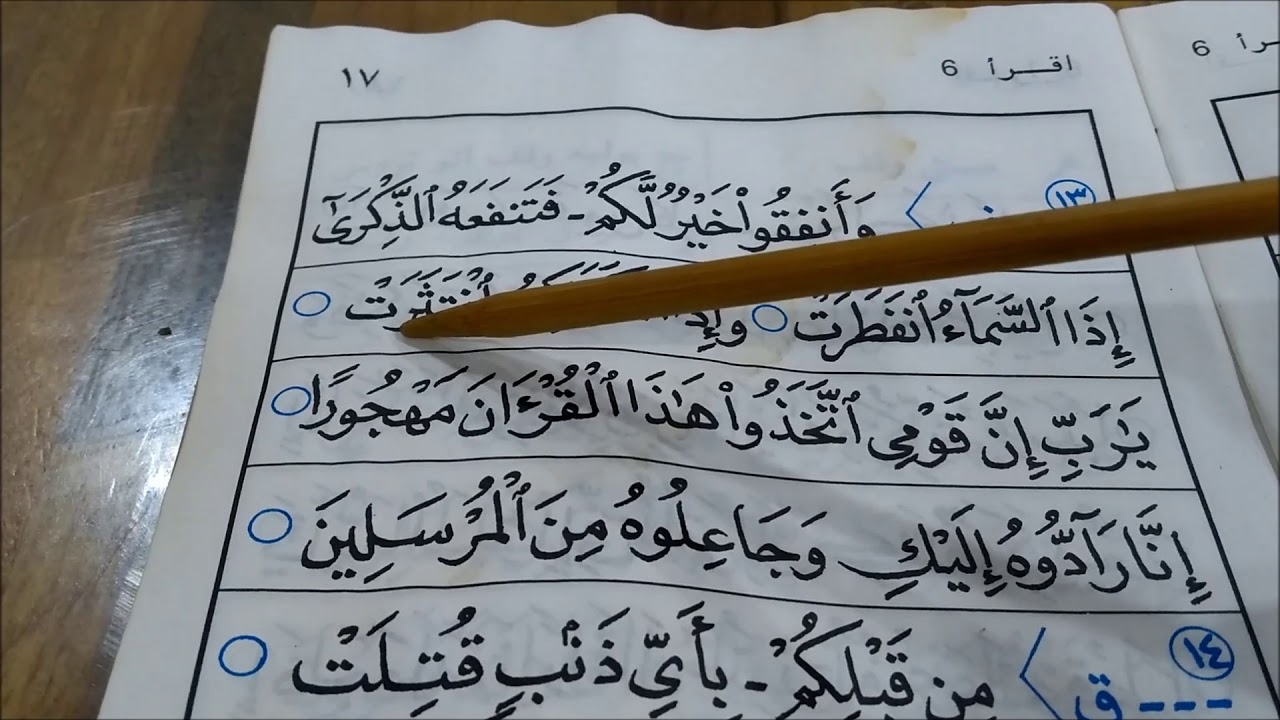 اقـرأ 6 ١٧
١٣ وَأَنفِقُوا۟ خَيْرٌ لَّكُمْ - فَتَنفَعَهُ ٱلذِّكْرَىٰٓ
إِذَا ٱلسَّمَآءُ ٱنفَطَرَتْ وَإِذَا ٱنتَثَرَتْ
يَـٰرَبِّ إِنَّ قَوْمِى ٱتَّخَذُوا۟ هَـٰذَا ٱلْقُرْءَانَ مَهْجُورًا
إِنَّا رَآدُّوهُ إِلَيْكِ وَجَاعِلُوهُ مِنَ ٱلْمُرْسَلِينَ
١٤ ---ق مِن قَبْلِكُمْ - بِأَىِّ ذَنۢبٍ قُتِلَتْ